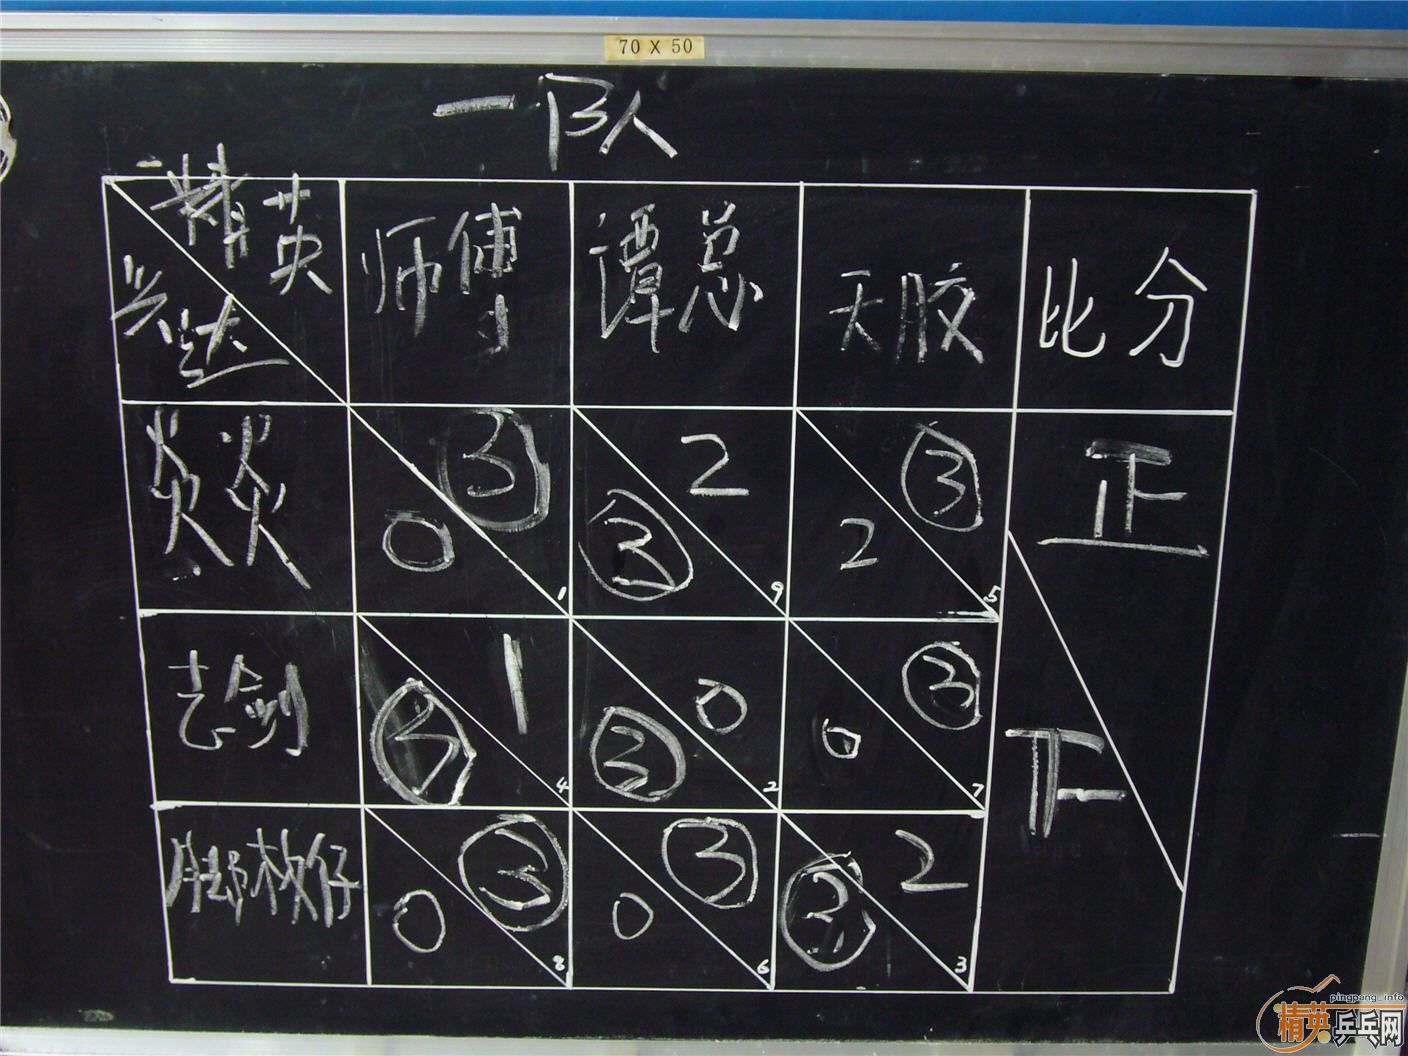 70 X 50
一队
精英 师傅 谭总 天胶 比分
兴达
焱焱 3 0 1 2 3 9 3 2 5 正
志剑 1 3 4 0 3 2 3 0 7 下
脚板仔 3 0 8 3 0 6 2 3 3
pingpang.info
精英乒乓网